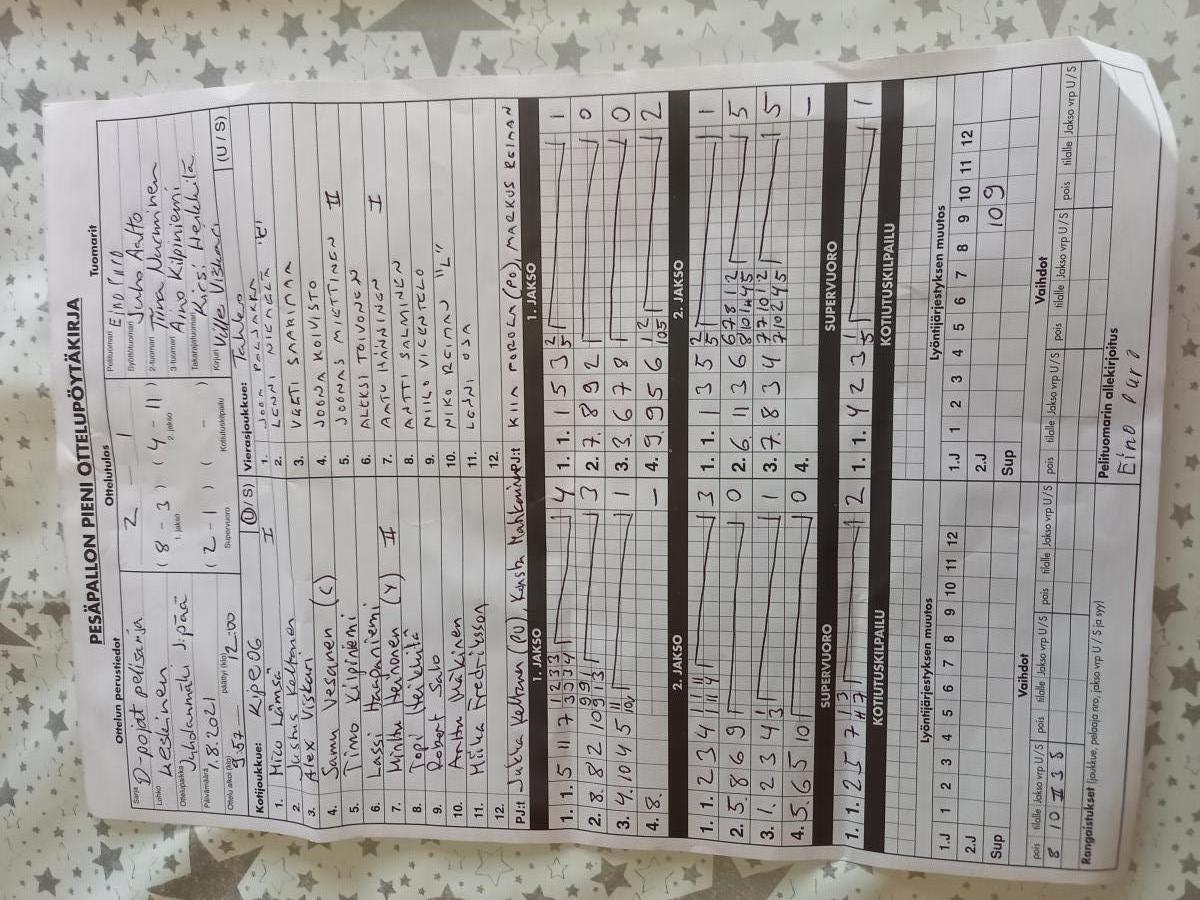 PESÄPALLON PIENI OTTELUPÖYTÄKIRJA
Ottelun perustiedot
Sarja D-pojat pelisarja
Lohko Keskinen
Ottelupaikka Juhdanmäki J:pää
Päivämäärä 1.8.2021
Ottelu alkoi (klo) 9:57 päättyi (klo) 12:00
Ottelutulos
2 – 1
( 8 – 3 ) ( 4 – 11 )
1. jakso 2. jakso
( 2 – 1 ) ( – )
Supervuoro Kotiutuskilpailu
Tuomarit
Pelituomari Eino Puro
Syöttötuomari Juho Aalto
2-tuomari Tiina Nurminen
3-tuomari Aino Kilpiniemi
Takarajatuomari Kirsi Heikkilä
Kirjuri Ville Viskari
Kotijoukkue: Kipe 06 (U / S)
1. Mico Lämsä I
2. Justus Keltanen
3. Alex Viskari
4. Samu Vesanen (C)
5. Timo Kilpiniemi
6. Lassi Haapaniemi
7. Minttu Heinonen (Y) II
8. Topi Heikkilä
9. Robert Salo
10. Anttu Mäkinen
11. Miika Fredriksson
12.
PJ:t Jukka Keltanen (PU),
Vierasjoukkue: Tahko (U / S)
1. JOONA PALJAKKA "C"
2. LENNI NIEMELÄ
3. VEETI SAARINAA
4. JOONA KOIVISTO
5. JOONAS MIETTINEN II
6. ALEKSI TOIVONEN
7. AATU HÄNNINEN I
8. ANTTI SALMINEN
9. NIILO VICENTELO
10. NIKO REIMAN "L"
11. LENNI OSA
12.
PJ:t KIIA POROLA (PO), MARKUS REIMAN
1. JAKSO
1. 1. 5 11 7 1 2 3 3 4
3 3 3 4
2. 8. 8 2 10 9 9 3
9 1 3
3. 4. 10 4 5 11 1
10
4. 8. –
1. JAKSO
1. 1. 1 5 3 2 1
5
2. 7. 8 9 2 0
3. 3. 6 7 8 0
4. 9. 9 5 6 1 2 2
10 5
2. JAKSO
1. 1. 2 3 4 1 11 3
11 11 4
2. 5. 8 6 9 0
3. 1. 2 3 4 1 1
3
4. 5. 6 5 10 0
2. JAKSO
1. 1. 1 3 5 2 1
5
2. 6. 11 3 6 6 7 8 1 2 5
8 10 1 4 5
3. 7. 8 3 4 7 7 10 1 2 5
7 10 2 4 5
4. –
SUPERVUORO
1. 1. 2 5 7 7 3 2
11 7
SUPERVUORO
1. 1. 4 2 3 1 1
5
KOTIUTUSKILPAILU
KOTIUTUSKILPAILU
Lyöntijärjestyksen muutos
1.J 1 2 3 4 5 6 7 8 9 10 11 12
2.J
Sup
Lyöntijärjestyksen muutos
1.J 1 2 3 4 5 6 7 8 9 10 11 12
2.J
Sup 10 9
Vaihdot
pois tilalle Jakso vrp U / S pois tilalle Jakso vrp U / S pois tilalle Jakso vrp U / S
8 10 II 3 S
Vaihdot
pois tilalle Jakso vrp U / S pois tilalle Jakso vrp U / S pois tilalle Jakso vrp U / S
Rangaistukset (joukkue, pelaaja nro, jakso vrp U / S ja syy)
Pelituomarin allekirjoitus
Eino Puro